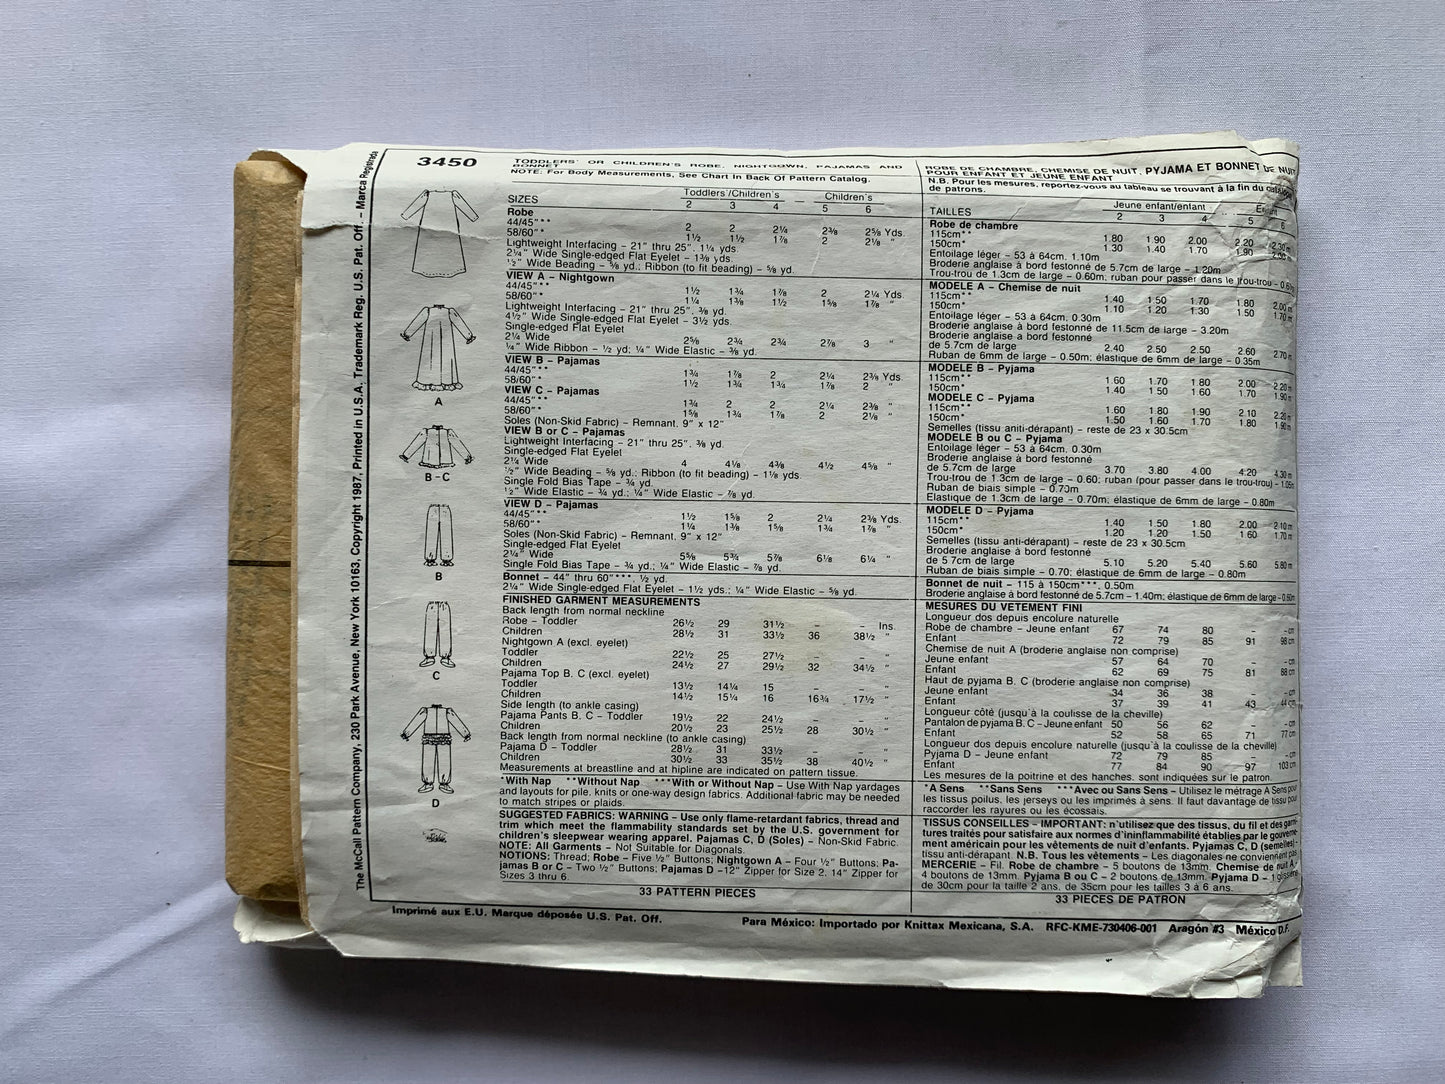 3450
TODDLERS' OR CHILDREN'S ROBE, NIGHTGOWN, PAJAMAS AND
BONNET
NOTE: For Body Measurements, See Chart In Back Of Pattern Catalog.
SIZES Toddlers'/Children's Children's
2 3 4 5 6
Robe
44/45"** 2 2 2¼ 2⅜ 2⅝ Yds.
58/60"* 1½ 1½ 1⅞ 2 2⅛ "
Lightweight Interfacing – 21" thru 25", 1¼ yds.
2¼" Wide Single-edged Flat Eyelet – 1⅜ yds.
½" Wide Beading – ⅝ yd.; Ribbon (to fit beading) – ⅝ yd.
VIEW A – Nightgown
44/45"** 1½ 1¾ 1⅞ 2 2¼ Yds.
58/60"* 1¼ 1⅜ 1½ 1⅝ 1⅞ "
Lightweight Interfacing – 21" thru 25", ⅜ yd.
4½" Wide Single-edged Flat Eyelet – 3½ yds.
Single-edged Flat Eyelet
2¼" Wide 2⅝ 2¾ 2¾ 2⅞ 3 "
¼" Wide Ribbon – ½ yd; ¼" Wide Elastic – ⅜ yd.
VIEW B – Pajamas
44/45"** 1¾ 1⅞ 2 2¼ 2⅜ Yds.
58/60"* 1½ 1¾ 1¾ 1⅞ 2 "
VIEW C – Pajamas
44/45"** 1¾ 2 2 2¼ 2⅜ "
58/60"* 1⅝ 1¾ 1⅞ 2 2⅛ "
Soles (Non-Skid Fabric) – Remnant, 9" x 12"
VIEW B or C – Pajamas
Lightweight Interfacing – 21" thru 25", ⅜ yd.
Single-edged Flat Eyelet
2¼ Wide 4 4⅛ 4⅜ 4½ 4⅝ "
½" Wide Beading – ⅝ yd.; Ribbon (to fit beading) – 1⅛ yds.
Single Fold Bias Tape – ¾ yd.
½" Wide Elastic – ¾ yd.; ¼" Wide Elastic – ⅞ yd.
VIEW D – Pajamas
44/45"** 1½ 1⅝ 2 2¼ 2⅜ Yds.
58/60"* 1¼ 1⅜ 1⅝ 1¾ 1⅞ "
Soles (Non-Skid Fabric) – Remnant, 9" x 12"
Single-edged Flat Eyelet
2¼" Wide 5⅝ 5¾ 5⅞ 6⅛ 6¼ "
Single Fold Bias Tape – ¾ yd.; ¼" Wide Elastic – ⅞ yd.
Bonnet – 44" thru 60"***, ½ yd.
2¼" Wide Single-edged Flat Eyelet – 1½ yds.; ¼" Wide Elastic – ⅝ yd.
FINISHED GARMENT MEASUREMENTS
Back length from normal neckline
Robe – Toddler 26½ 29 31½ – – Ins.
Children 28½ 31 33½ 36 38½ "
Nightgown A (excl. eyelet)
Toddler 22½ 25 27½ – – "
Children 24½ 27 29½ 32 34½ "
Pajama Top B, C (excl. eyelet)
Toddler 13½ 14¼ 15 – – "
Children 14½ 15¼ 16 16¾ 17½ "
Side length (to ankle casing)
Pajama Pants B, C – Toddler 19½ 22 24½ – – "
Children 20½ 23 25½ 28 30½ "
Back length from normal neckline (to ankle casing)
Pajama D – Toddler 28½ 31 33½ – – "
Children 30½ 33 35½ 38 40½ "
Measurements at breastline and at hipline are indicated on pattern tissue.
*With Nap **Without Nap ***With or Without Nap – Use With Nap yardages
and layouts for pile, knits or one-way design fabrics. Additional fabric may be needed
to match stripes or plaids.
SUGGESTED FABRICS: WARNING – Use only flame-retardant fabrics, thread and
trim which meet the flammability standards set by the U.S. government for
children's sleepwear wearing apparel. Pajamas C, D (Soles) – Non-Skid Fabric.
NOTE: All Garments – Not Suitable for Diagonals.
NOTIONS: Thread; Robe – Five ½" Buttons; Nightgown A – Four ½" Buttons; Pa-
jamas B or C – Two ½" Buttons; Pajamas D –12" Zipper for Size 2, 14" Zipper for
Sizes 3 thru 6.
33 PATTERN PIECES
ROBE DE CHAMBRE, CHEMISE DE NUIT, PYJAMA ET BONNET DE NUIT
POUR ENFANT ET JEUNE ENFANT
N.B. Pour les mesures, reportez-vous au tableau se trouvant à la fin du catalogue
de patrons.
TAILLES Jeune enfant/enfant Enfant
2 3 4 5 6
Robe de chambre
115cm** 1.80 1.90 2.00 2.20 2.30 m
150cm* 1.30 1.40 1.70 1.90 2.00 m
Entoilage léger – 53 à 64cm, 1.10m
Broderie anglaise à bord festonné de 5.7cm de large – 1.20m
Trou-trou de 1.3cm de large – 0.60m; ruban pour passer dans le trou-trou – 0.60m
MODELE A – Chemise de nuit
115cm** 1.40 1.50 1.70 1.80 2.00 m
150cm* 1.10 1.20 1.30 1.50 1.70 m
Entoilage léger – 53 à 64cm, 0.30m
Broderie anglaise à bord festonné de 11.5cm de large – 3.20m
Broderie anglaise a bord festonné
de 5.7cm de large 2.40 2.50 2.50 2.60 2.70 m
Ruban de 6mm de large – 0.50m; élastique de 6mm de large – 0.35m
MODELE B – Pyjama
115cm** 1.60 1.70 1.80 2.00 2.20 m
150cm* 1.40 1.50 1.60 1.70 1.90 m
MODELE C – Pyjama
115cm** 1.60 1.80 1.90 2.10 2.20 m
150cm* 1.50 1.60 1.70 1.80 1.90 m
Semelles (tissu aniti-dérapant) – reste de 23 x 30.5cm
MODELE B ou C – Pyjama
Entoilage léger – 53 à 64cm, 0.30m
Broderie anglaise à bord festonné
de 5.7cm de large 3.70 3.80 4.00 4.20 4.30 m
Trou-trou de 1.3cm de large – 0.60; ruban (pour passer dans le trou-trou) – 1.05m
Ruban de biais simple – 0.70m
Elastique de 1.3cm de large – 0.70m; élastique de 6mm de large – 0.80m
MODELE D – Pyjama
115cm** 1.40 1.50 1.80 2.00 2.10 m
150cm* 1.20 1.20 1.50 1.60 1.70 m
Semelles (tissu anti-dérapant) – reste de 23 x 30.5cm
Broderie anglaise à bord festonné
de 5.7cm de large 5.10 5.20 5.40 5.60 5.80 m
Ruban de biais simple – 0.70; élastique de 6mm de large – 0.80m
Bonnet de nuit – 115 à 150cm***, 0.50m
Broderie anglaise à bord festonné de 5.7cm – 1.40m; élastique de 6mm de large – 0.60m
MESURES DU VETEMENT FINI
Longueur dos depuis encolure naturelle
Robe de chambre – Jeune enfant 67 74 80 – – cm
Enfant 72 79 85 91 98 cm
Chemise de nuit A (broderie anglaise non comprise)
Jeune enfant 57 64 70 – – cm
Enfant 62 69 75 81 88 cm
Haut de pyjama B, C (broderie anglaise non comprise)
Jeune enfant 34 36 38 – – cm
Enfant 37 39 41 43 44 cm
Longueur côté (jusqu'à la coulisse de la cheville)
Pantalon de pyjama B, C – Jeune enfant 50 56 62 – – cm
Enfant 52 58 65 71 77 cm
Longueur dos depuis encolure naturelle (jusqu'à la coulisse de la cheville)
Pyjama D – Jeune enfant 72 79 85 – – cm
Enfant 77 84 90 97 103 cm
Les mesures de la poitrine et des hanches, sont indiquées sur le patron.
*A Sens **Sans Sens ***Avec ou Sans Sens – Utilisez le métrage A Sens pour
les tissus poilus, les jerseys ou les imprimés à sens. Il faut davantage de tissu pour
raccorder les rayures ou les écossais.
TISSUS CONSEILLES – IMPORTANT: n'utilisez que des tissus, du fil et des garni-
tures traités pour satisfaire aux normes d'ininflammabilité établies par le gouverne-
ment américain pour les vêtements de nuit d'enfants. Pyjamas C, D (semelles) –
tissu anti-dérapant. N.B. Tous les vêtements – Les diagonales ne conviennent pas
MERCERIE – Fil. Robe de chambre – 5 boutons de 13mm. Chemise de nuit A –
4 boutons de 13mm. Pyjama B ou C – 2 boutons de 13mm. Pyjama D – 1 glissière
de 30cm pour la taille 2 ans, de 35cm pour les tailles 3 à 6 ans.
33 PIECES DE PATRON
A
B-C
B
C
D
The McCall Pattern Company, 230 Park Avenue, New York 10163, Copyright 1987, Printed in U.S.A. Trademark Reg. U.S. Pat. Off. – Marca Registrada
Imprimé aux E.U. Marque déposée U.S. Pat. Off.
Para México: Importado por Knittax Mexicana, S.A. RFC-KME-730406-001 Aragón #3 México D.F.